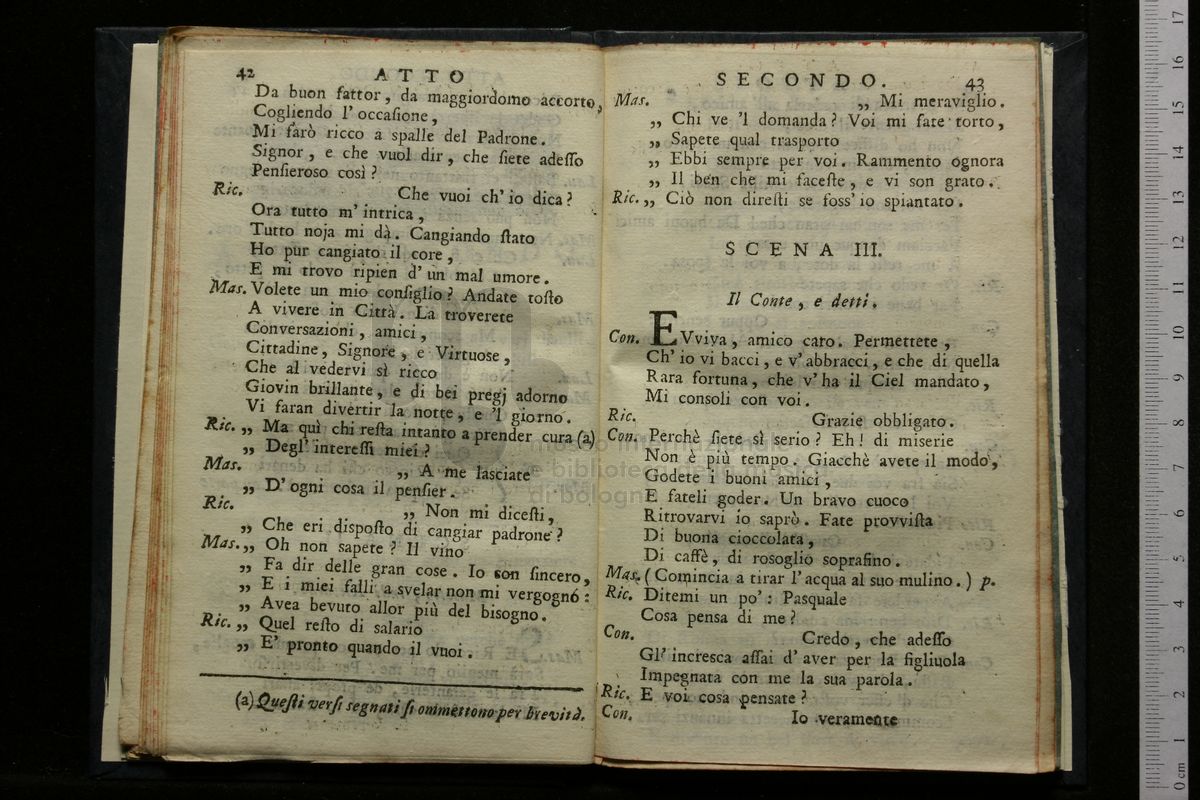 42 ATTO
Da buon fattor, da maggiordomo accorto,
Cogliendo l' occaſione,
Mi farò ricco a spalle del Padrone.
Signor, e che vuol dir, che ſiete adeſſo
Penſieroso così?
Ric. Che vuoi ch' io dica?
Ora tutto m' intrica,
Tutto noja mi dà. Cangiando ſtato
Ho pur cangiato il core,
E mi trovo ripien d' un mal umore.
Mas. Volete un mio conſiglio? Andate toſto
A vivere in Città. La troverete
Conversazioni, amici,
Cittadine, Signore, e Virtuose,
Che al vedervi sì ricco
Giovin brillante, e di bei pregj adorno
Vi faran divertir la notte, e 'l giorno.
Ric. „ Ma quì chi reſta intanto a prender cura (a)
„ Degl' intereſſi miei?
Mas. „ A me laſciate
„ D' ogni cosa il penſier.
Ric. „ Non mi diceſti,
„ Che eri dispoſto di cangiar padrone?
Mas. „ Oh non sapete? Il vino
„ Fa dir delle gran cose. Io son ſincero,
„ E i miei falli a svelar non mi vergognó:
„ Avea bevuto allor più del bisogno.
Ric. „ Quel reſto di salario
„ E' pronto quando il vuoi.
(a) Queſti verſi segnati ſi ommettono per brevità.
SECONDO. 43
Mas. „ Mi meraviglio.
„ Chi ve 'l domanda? Voi mi fate torto,
„ Sapete qual trasporto
„ Ebbi sempre per voi. Rammento ognora
„ Il ben che mi faceſte, e vi son grato.
Ric. „ Ciò non direſti se foss' io spiantato.
SCENA III.
Il Conte, e detti.
Con. EVviva, amico caro. Permettete,
Ch' io vi bacci, e v' abbracci, e che di quella
Rara fortuna, che v' ha il Ciel mandato,
Mi consoli con voi.
Ric. Grazie obbligato.
Con. Perchè ſiete sì serio? Eh! di miserie
Non è più tempo. Giacchè avete il modo,
Godete i buoni amici,
E fateli goder. Un bravo cuoco
Ritrovarvi io saprò. Fate provviſta
Di buona cioccolata,
Di caffè, di rosoglio sopraſino.
Mas. (Comincia a tirar l' acqua al suo mulino.) p.
Ric. Ditemi un po': Pasquale
Cosa pensa di me?
Con. Credo, che adeſſo
Gl' incresca aſſai d' aver per la figliuola
Impegnata con me la sua parola.
Ric. E voi cosa pensate?
Con. Io veramente
museo internazionale
e biblioteca della musica
di bologna
0 cm 1 2 3 4 5 6 7 8 9 10 11 12 13 14 15 16 17